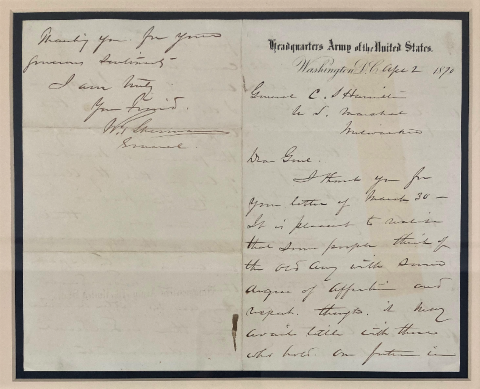 Headquarters Army of the United States.
Washington D.C. Apl 2 1870
General C. S Hamilton
U. S. Marshal
Milwaukee
Dear Genl.
I thank you for
your letter of March 30 —
It is pleasant to realize
that some people think of
the old Army with some
degree of affection and
respect. though it may
avail little with those
who hold our future in
Thanking you for your
generous
I am truly
Your Friend.
W. T. Sherman
General